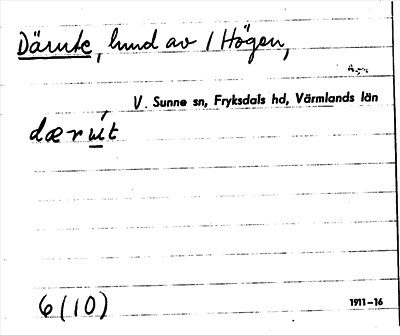 Därute, hund av 1 Högen,
V. Sunne sn, Fryksdals hd, Värmlands län
6(10)
1911–16